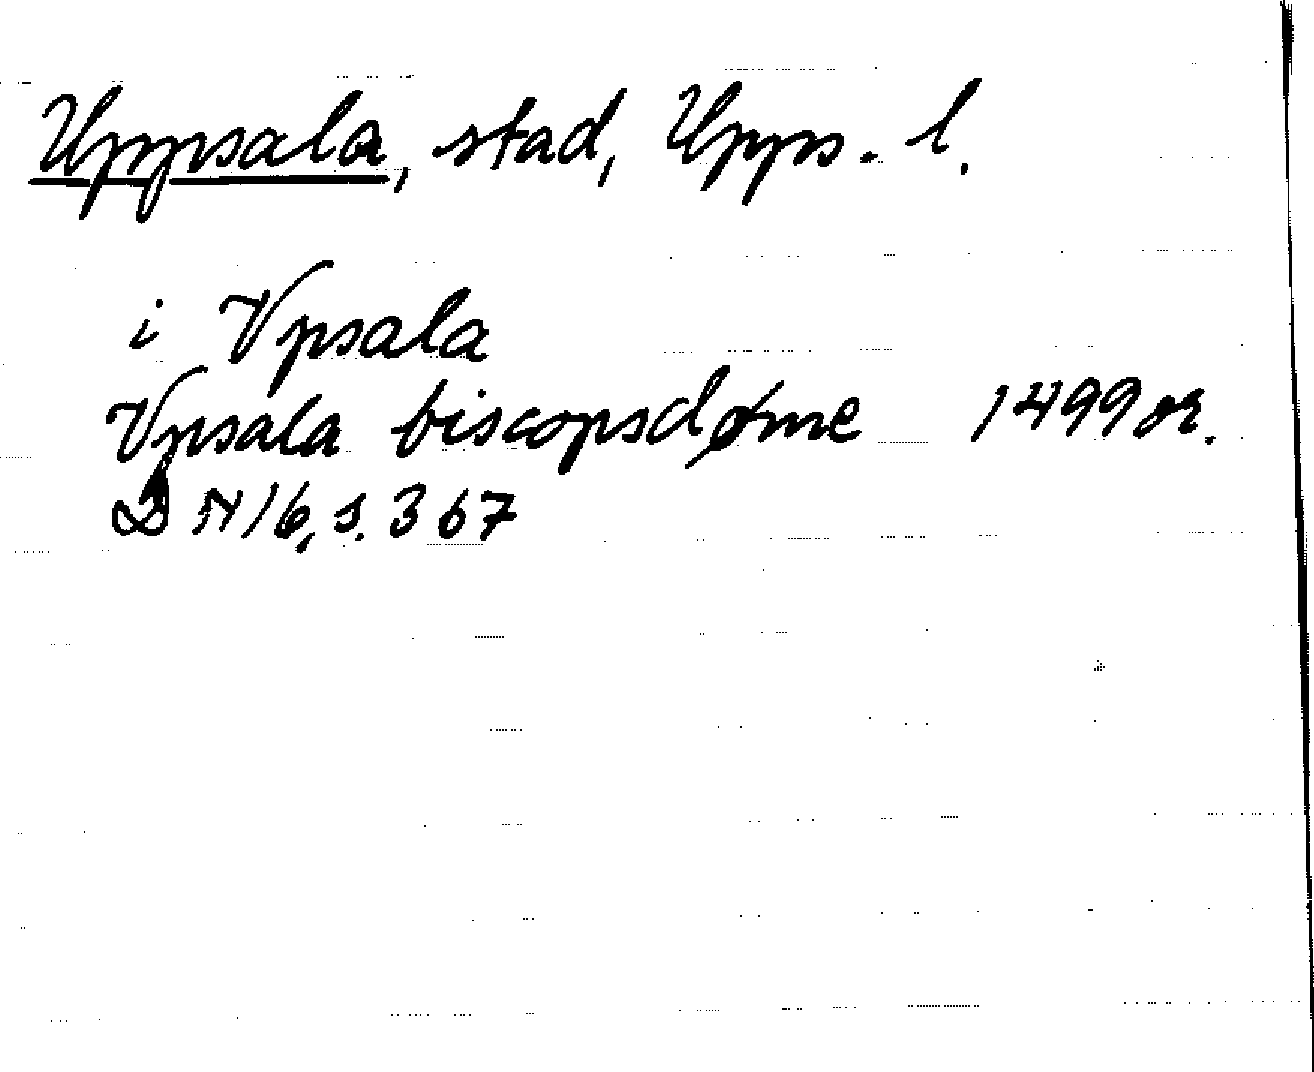 Uppsala, stad, Upps. l.
i Vpsala
Vpsala biscopsdøme 1499 or.
DN 16, s. 367